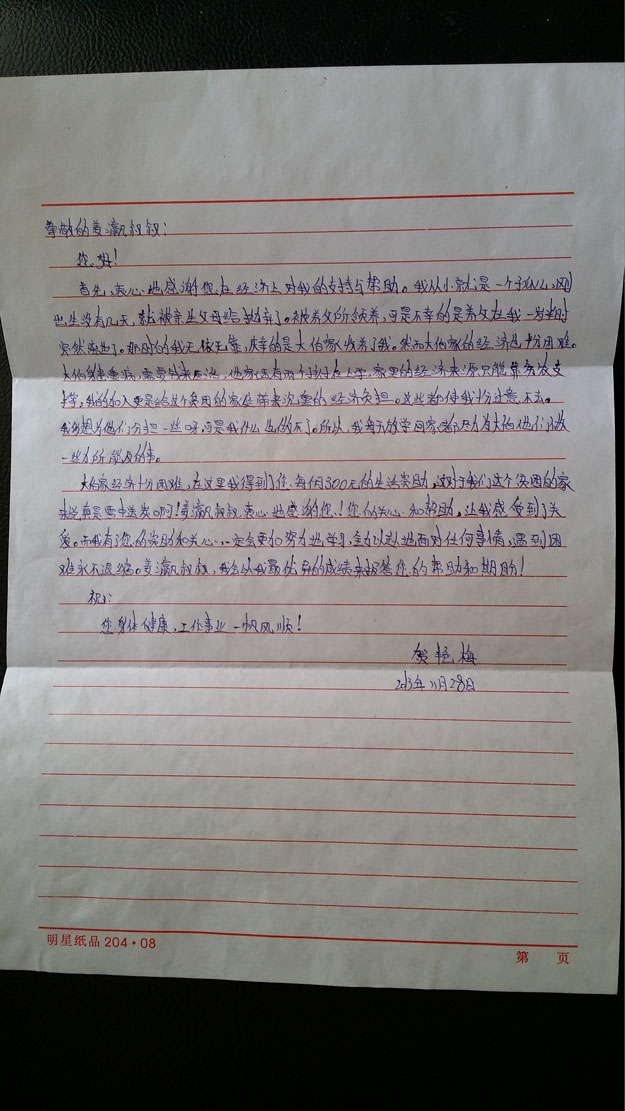 尊敬的姜瀛叔叔:
您好!
首先,衷心地感谢您在经济上对我的支持与帮助。我从小就是一个孤儿,刚
出生没有几天,就被亲生父母给抛弃了。被养父所领养,可是不幸的是养父在我一岁半时
突然病逝了。那时的我无依无靠,庆幸的是大伯家收养了我。然而大伯家的经济也十分困难。
大伯身患重病,需要钱来医治,他家还有两个孩子在上学,家里的经济来源只能靠务农支
撑,我的加入更是给这个贫困的家庭带来沉重的经济负担。这些都使我十分过意不去。
我多想为他们分担一些呀,可是我什么也做不了。所以,我每天放学回家都尽力为大伯他们做
一些力所能及的事。
大伯家经济十分困难,在这里我得到了您每个月300元的生活资助,这对于我们这个贫困的家
来说真是雪中送炭啊!姜瀛叔叔,衷心地感谢您!您的关心和帮助,让我感受到了关
爱。而我有了您的资助和关心,一定会更加努力地学习,全力以赴地面对任何事情,遇到困
难永不退缩。姜瀛叔叔,我会以我最优异的成绩来报答您的帮助和期盼!
祝:
您身体健康,工作事业一帆风顺!
贺艳梅
2013年11月28日
明星纸品 204·08
第 页